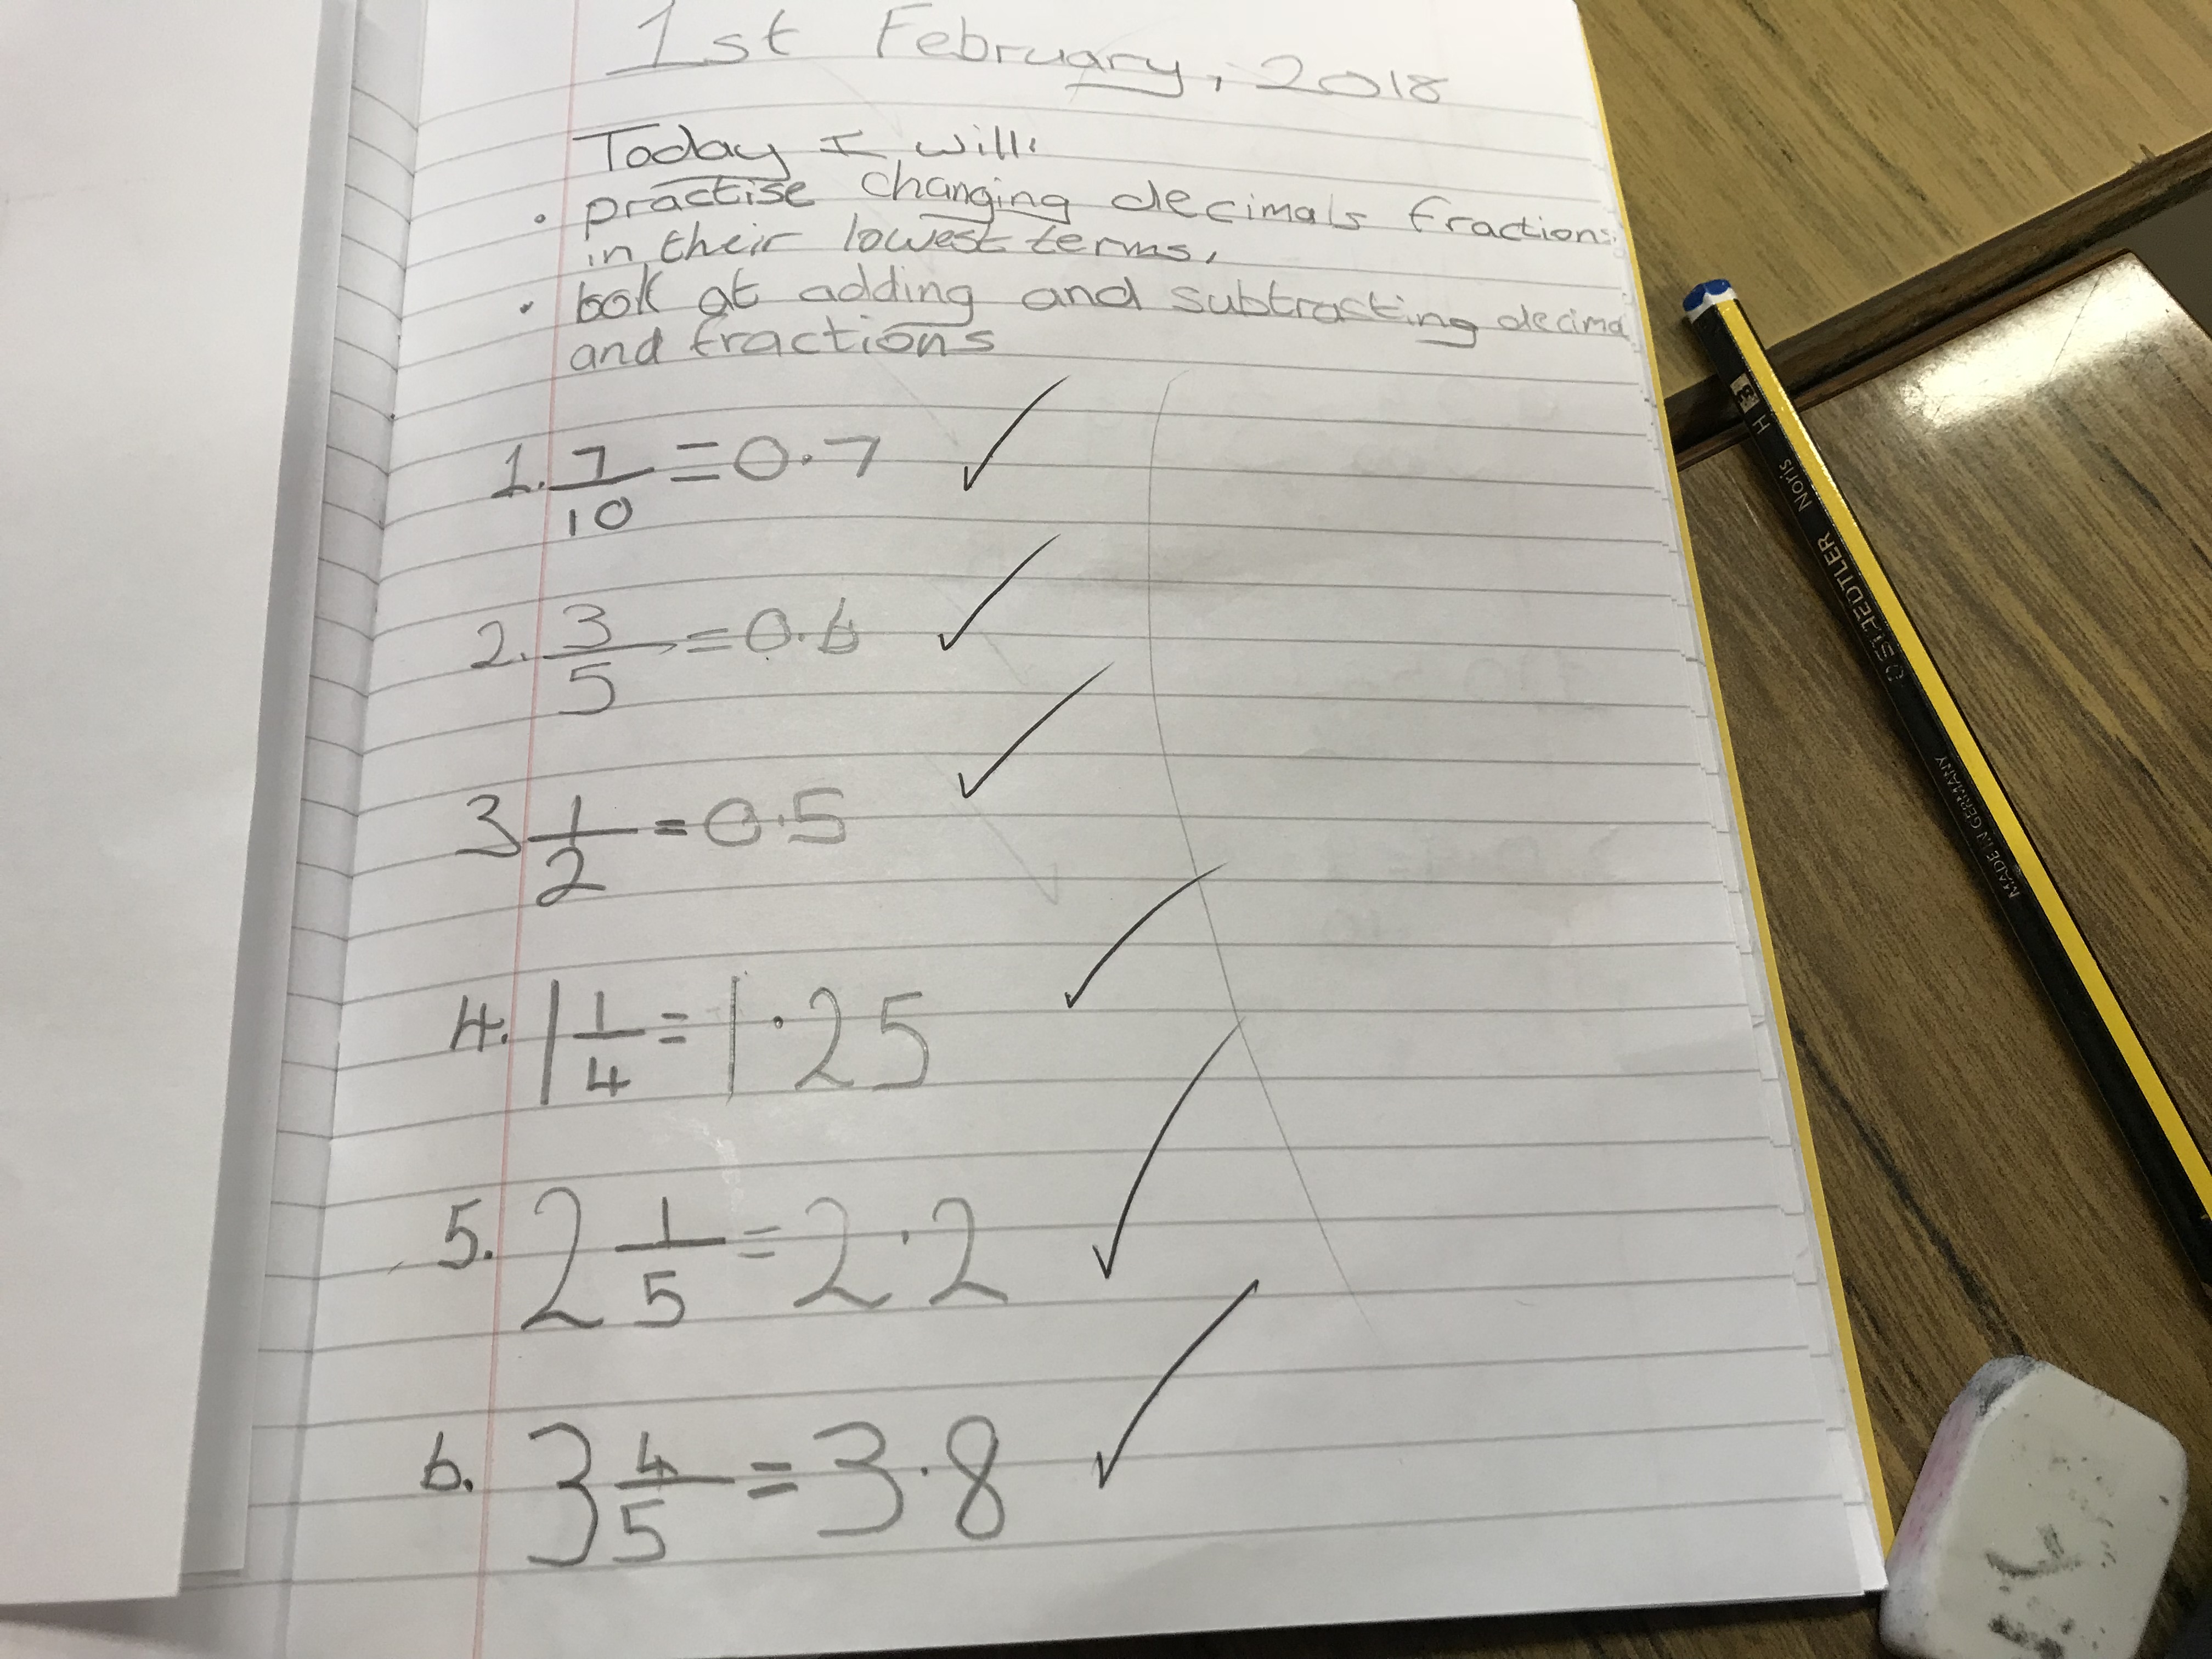 1st February, 2018
Today I will:
• practise changing decimals fractions
in their lowest terms.
• look at adding and subtracting decima
and fractions
1. 7/10 = 0.7 ✓
2. 3/5 = 0.6 ✓
3 1/2 = 0.5 ✓
4. 1 1/4 = 1.25 ✓
5. 2 1/5 = 2.2 ✓
6. 3 4/5 = 3.8 ✓
HB
Noris
STAEDTLER
MADE IN GERMANY